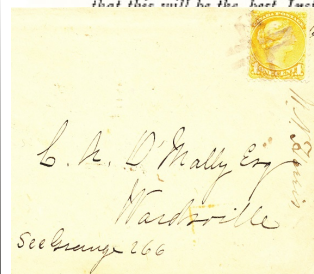 that this will be the best
C. N. O'Mally Esq
Wardsville
See Grange 266